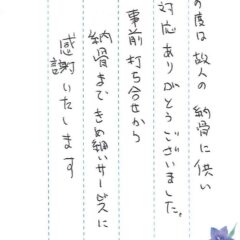 の度は故人の 納骨に供い
対応ありがとうございました。
事前打ち合せから
納骨まできめ細いサービスに
感謝いたします